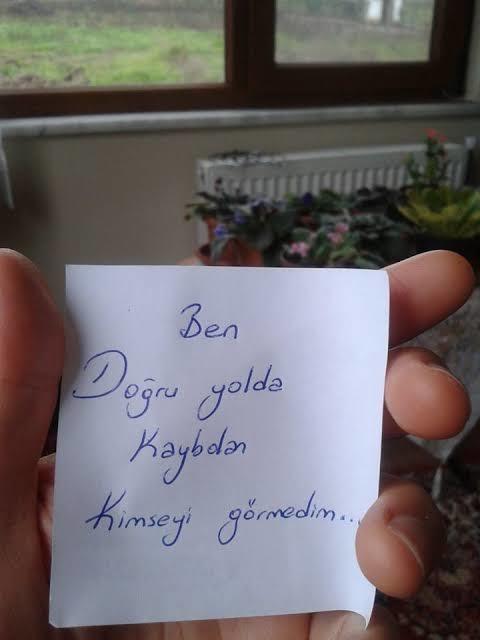 Ben
Doğru yolda
Kaybolan
Kimseyi görmedim...